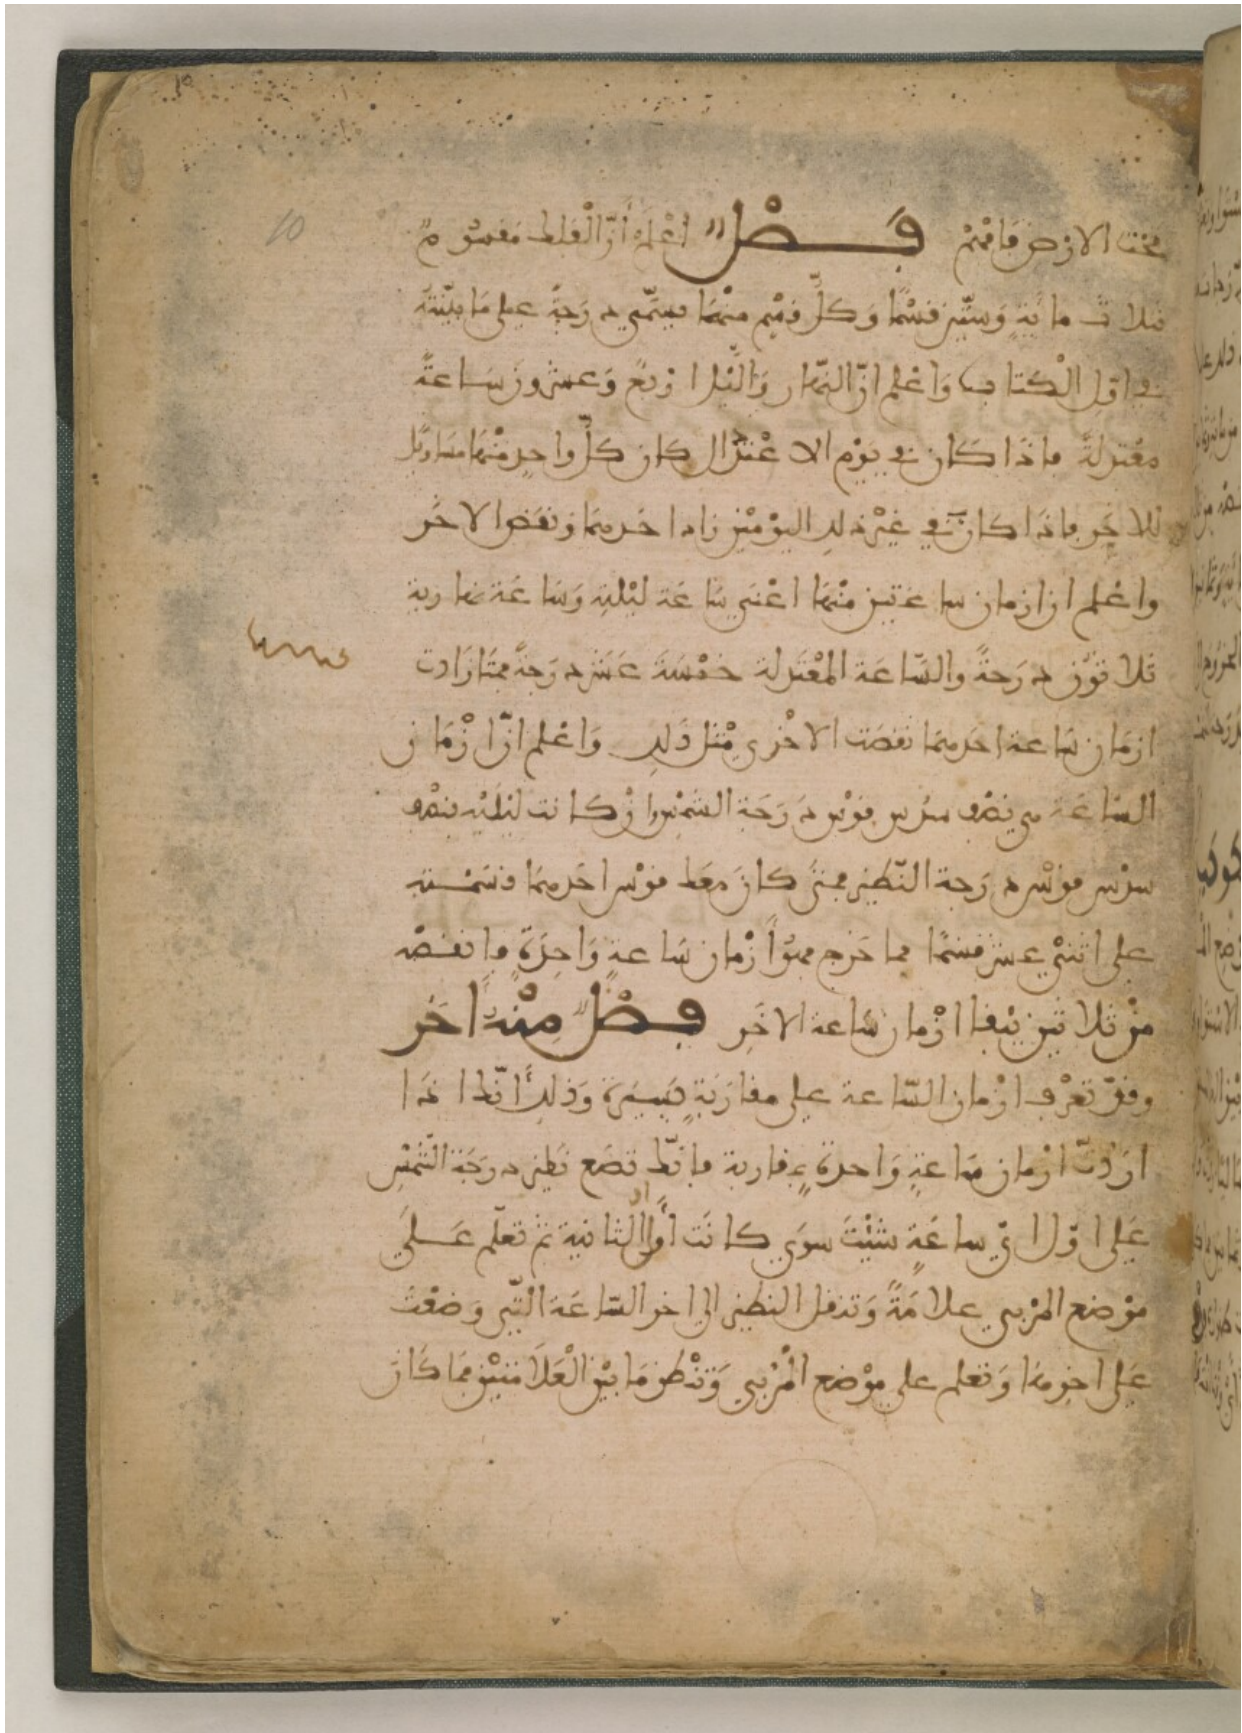 تحت الارض فافهم فَصْل اعْلَمْ أنّ الْفلك مَقسُوم
ثلاث مائةٍ وَستّين قسْمًا وَكلّ قسْمٍ منْهَا يسَمّى دَرَجةً على مَا بيّنتَه
في اوّلِ الْكتاب وَاعْلم انّ النّهار وَالّيْل ارْبعٌ وَعشرونَ سَاعةً
معْتدلةً فاذَا كان في يَوْم الاعْتدال كان كلّ واحدٍ منْهَا مسَاويًا
للاخَرِ فاذَا كانَ في غيْر ذلك اليوْميْن زاد احَدهمَا ونقصَ الاخَر
واعْلم ان ازمان ساعتين منْهَا اعْني سَاعَة ليْليةٍ وَسَاعَة نهارية
ثلاثون دَرَجةً والسّاعَة المعْتَدلة خمْسَةَ عَشر دَرَجةً فمَتَا زَادت
ازمَان سَاعة احَدهمَا نقصَت الاخْرى مثل ذَلك وَاعْلم انّ ازْمَان
السّاعَة هي نصْف سدُس قوْس دَرَجَة الشمْس وانْ كانت ليْليّة فنصْف
سدس قوْس دَرَجة النّظير فمتى كانَ معك قوْس احَدهمَا قسَمْته
على اثنيْ عشر قسْمًا فما خَرج فهُوَ ازْمان سَاعةٍ وَاحِدَةٍ فانقصْه
منْ ثلاثين يبْقا ازْمان سَاعة الاخَرِ فصْل مِنْه اخَر
وقدْ تعْرف ازْمان السّاعة على مقارَبَةٍ يَسيرَة وَذلك أنّك اذَا
ارَدْتّ ازْمان سَاعةٍ وَاحدة بمقاربة فانّك تضَع نَظير دَرَجَة الشّمْس
عَلى اوّل ايّ ساعَةٍ شئْتَ سوَى كانَت أولا او الثانية ثمّ تعلّم عَلَى
موْضع المرْيي علامَةً وَتدقل النظير الى اخر السّاعَة الّتي وَضعْتَ
عَلى اخرهَا وَتعلم على موْضع الْمرْيي وَتنْظر مَا بيْن الْعَلامَتيْن فمَا كَانَ
10